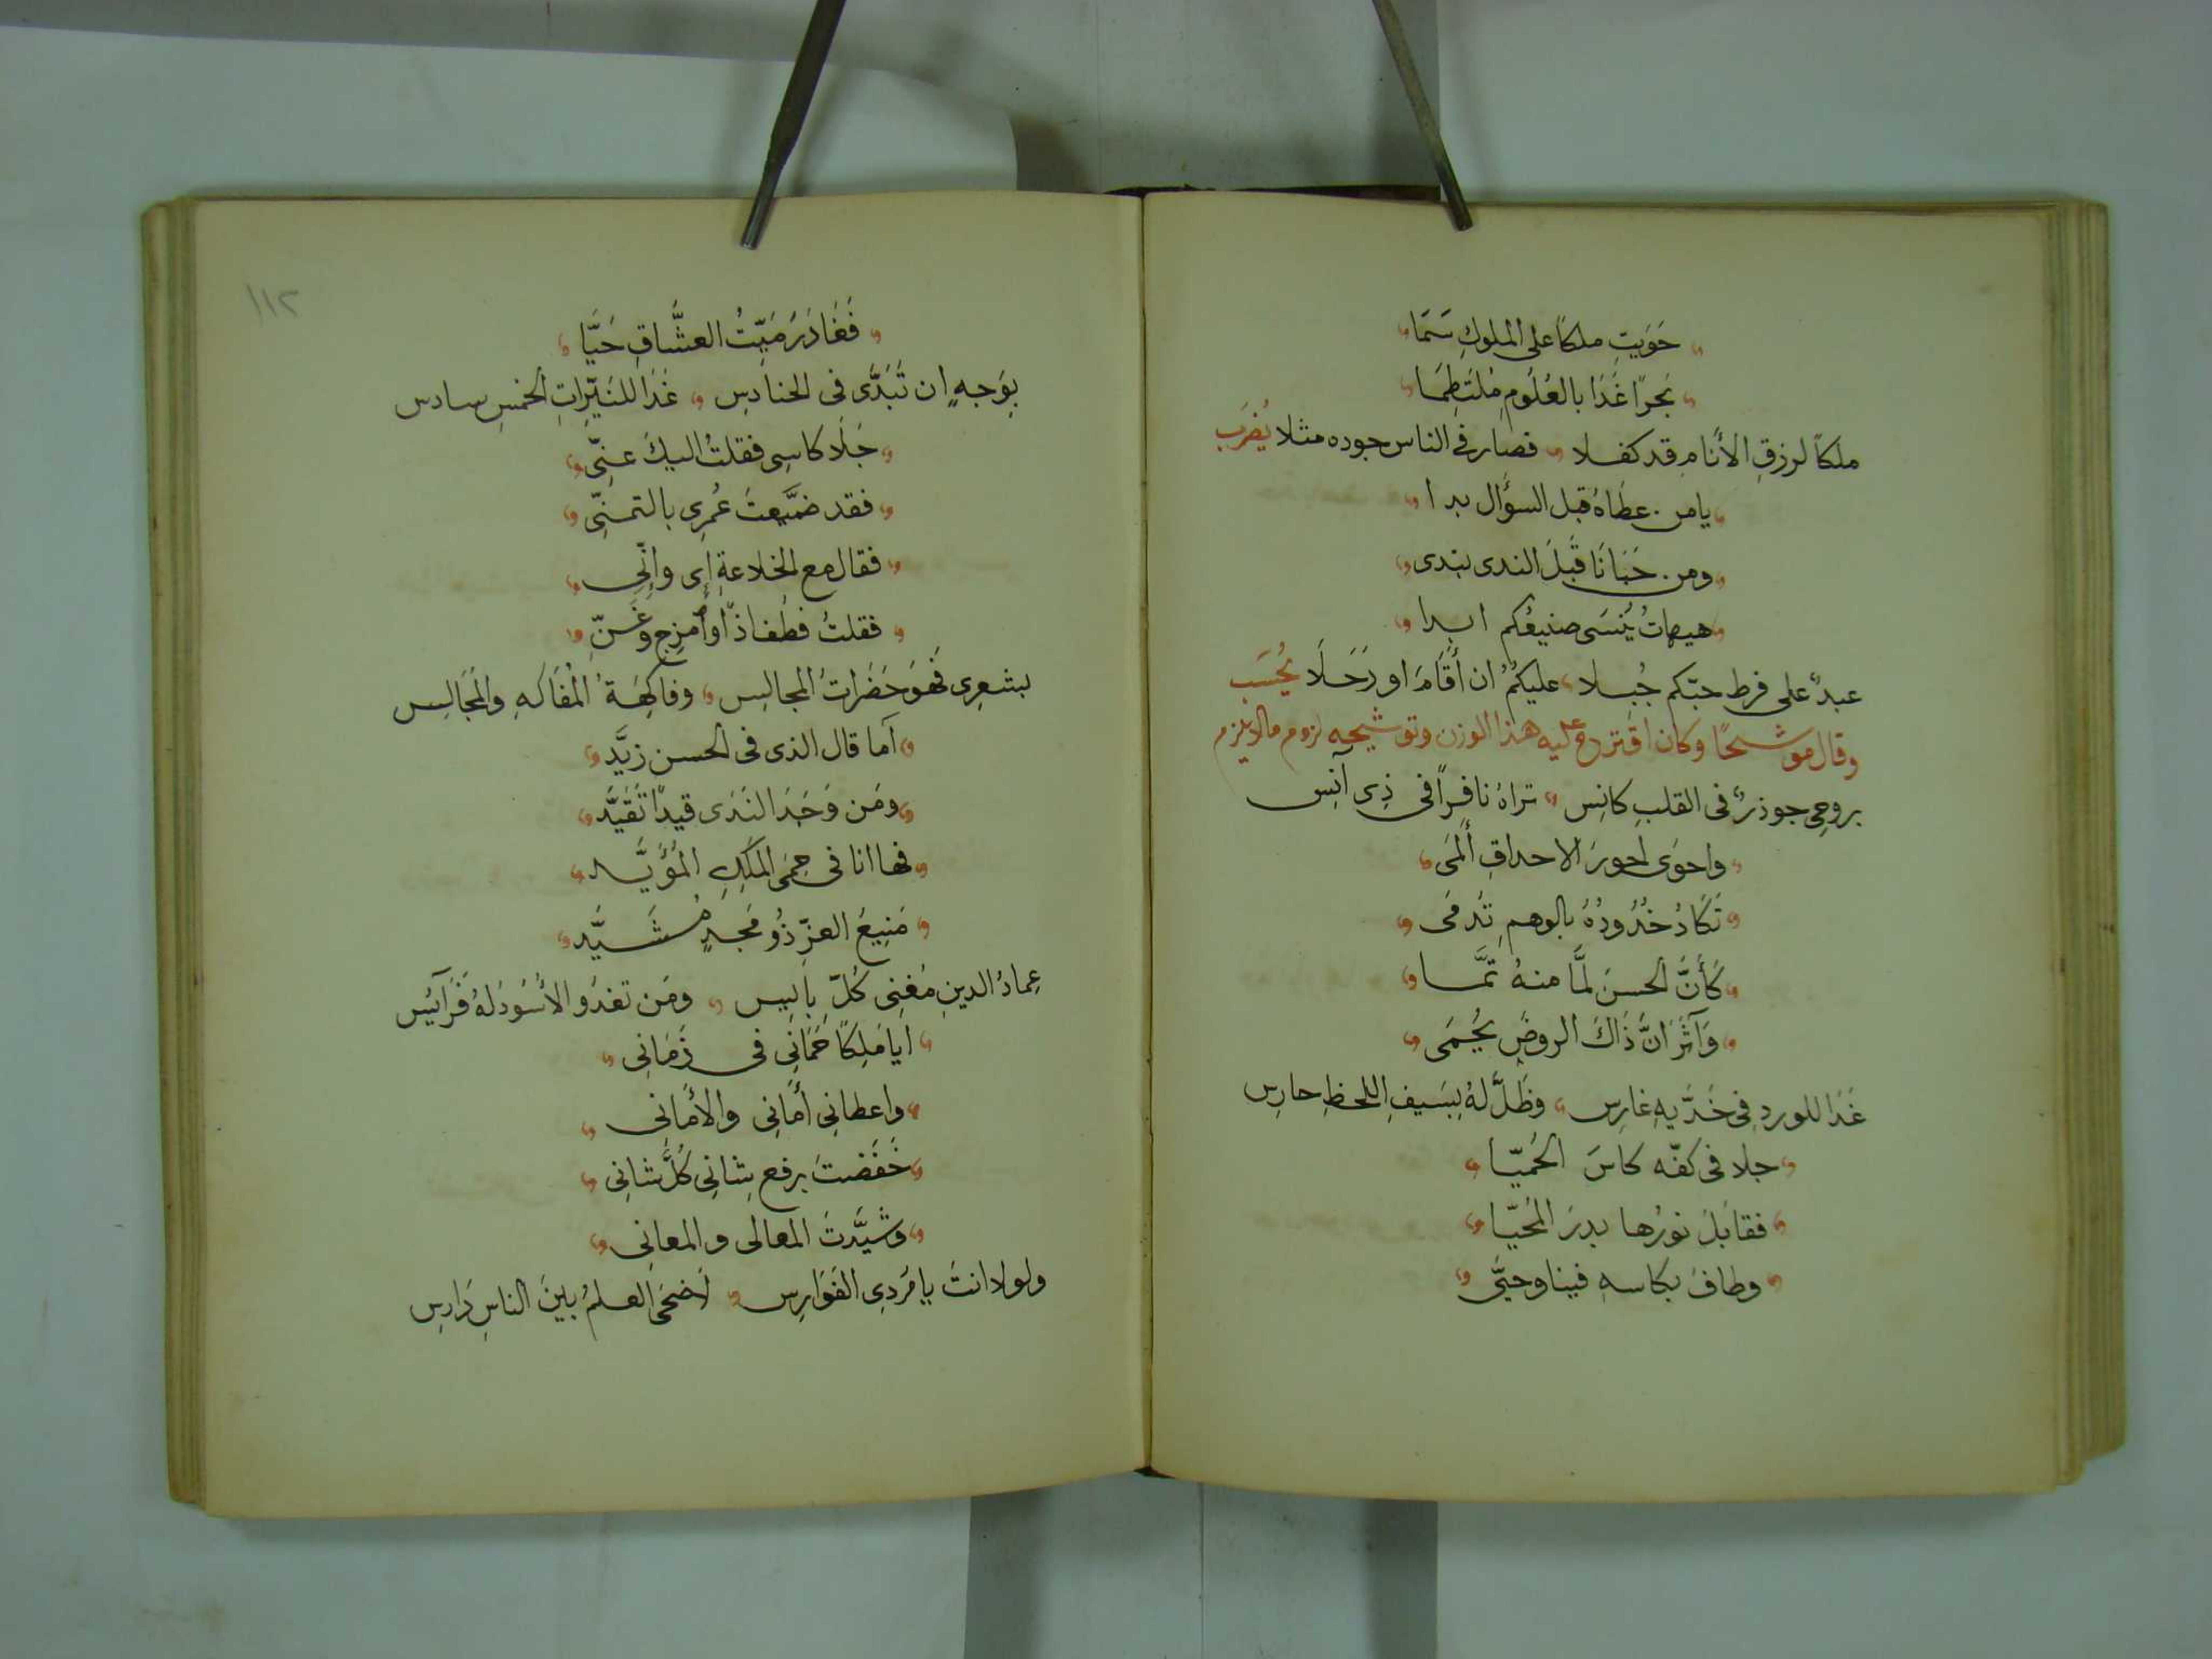 حَوَيتِ ملكًا على الملوكِ سَمَا
بَحرًا غَدَا بالعُلُومِ مُلتَطِمَا
ملكاً لرزقِ الأَنامِ قد كفلا فصار فى الناس جوده مثلا يُضرَب
يامن عطَاهُ قبل السؤَال بدا
ومن حَبَانَا قَبلَ الندى بندى
هيهاتُ يُنسَى صنيعُكم ابدا
عبدٌ على فرط حبّكم جُبِلا عليكمُ ان أَقَامَ او رَحَلَا يُحسَب
وقال موشحًا وكان اقترح عليه هذا الوزن وتوشيحه لزوم مالا يلزم
بروحِى جوذرٌ فى القلبِ كانِس تراهُ نافِرًا فى ذِى آنِس
واحوَى احورَ الاحداقِ أَلمَى
تَكَادُ خُدُودُهُ بالوهمِ تَدمَى
كَأَنَّ الحسنَ لمَّا منهُ تمَّا
وَآثَرَ انَّ ذَاكَ الروضَ يُحمَى
غَدَا للوردِ فِى خَدَّيهِ غارِس وظَلَّ لهُ بِسَيفِ اللحظِ حارِس
جلا فى كفّه كاسَ الحُميّا
فقابَلَ نورُها بدرَ المُحيّا
وطافَ بكاسهِ فينا وحيَّى
١١٢
فَغَادَرَ مَيّتُ العشَّاقِ حَيَّا
بِوَجهٍ ان تَبَدَّى فى الحنادِس غَدَا للنَيّراتِ الخمسِ سادس
جَلَا كاسِى فقلتُ اليكَ عنِّى
فقد ضيَّعتَ عُمرِى بالتمنِّى
فقال مع الخِلاعةِ إِى وإِنِّى
فقلتُ فطُف اذًا وأَمزج وغَنِّ
بشعرِى فَهوَ حَضَراتُ المجالِس وفاكِهَةُ المُفَاكهِ والمُجَالِس
اَما قال الذى فى الحسن زيَّد
ومَن وَجَدَ النَدَى قيدًا تَقَيَّد
فها انا فى حِمَى المَلِكِ المُؤَيَّد
مَنِيعُ العزِّ ذُو مَجدٍ مُشَيَّد
عِمادُ الدينِ مُغنِى كُلِّ بائِس ومَن تغدُو الأسُودُ لهُ فَرَائِس
ايا مَلِكًا حَمَانِى فى زَمَانِى
واعطانِى أَمَانِى والأَمَانِى
خَفَضتَ برفع شانِى كُلَّ شانِى
وشَيَّدتَ المعالى والمعانِى
ولولا انتَ يا مُردِى الفَوَارِس لَاضحَى العلمُ بينَ الناسِ دَارِس